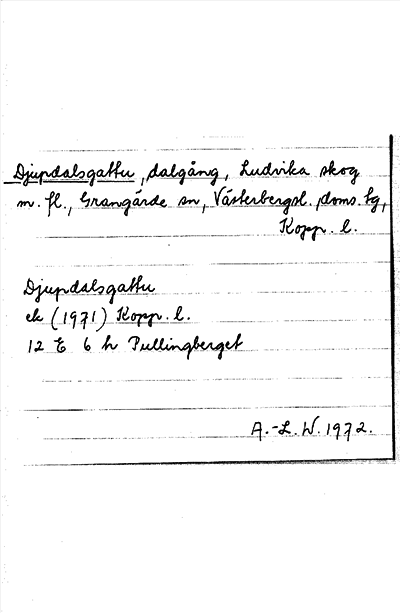 Djupdalsgattu, dalgång, Ludvika skog
m. fl., Grangärde sn, Västerbergsl. doms. tg,
Kopp. l.
Djupdalsgattu
ek (1971) Kopp. l.
12 E 6 h Pullingberget
A.-L. W. 1972.